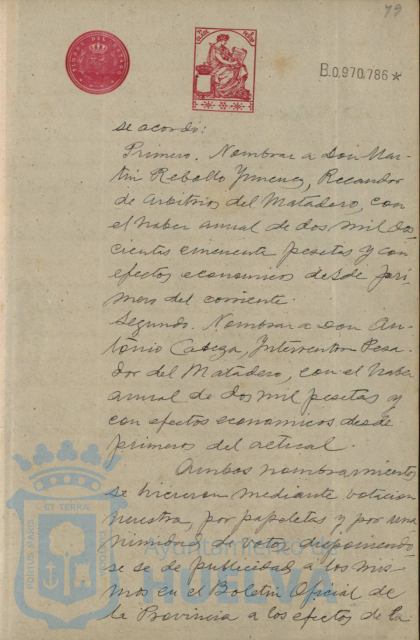 79
B.0,970,786*
se acordó:
Primero. Nombrar a Don Mar-
tin Rebollo Jimenez, Recaudor
de Arbitrios del Matadero, con
el haber anual de dos mil dos
cientas cincuenta pesetas y con
efectos economicos desde pri-
mero del corriente.
Segundo. Nombrar a Don An-
tonio Cabeza, Interventor Pesa-
dor del Matadero, con el haber
anual de dos mil pesetas y
con efectos economicos desde
primeros del actual.
Ambos nombramientos
se hicieron mediante votacion
por papeletas y por una
nimidad de votos disponiendo-
se se de publicidad a los mis-
mos en el Boletin Oficial de
la Provincia a los efectos de la
PORTUS MARIS ET TERRAE
Ayuntamiento de
HUELVA